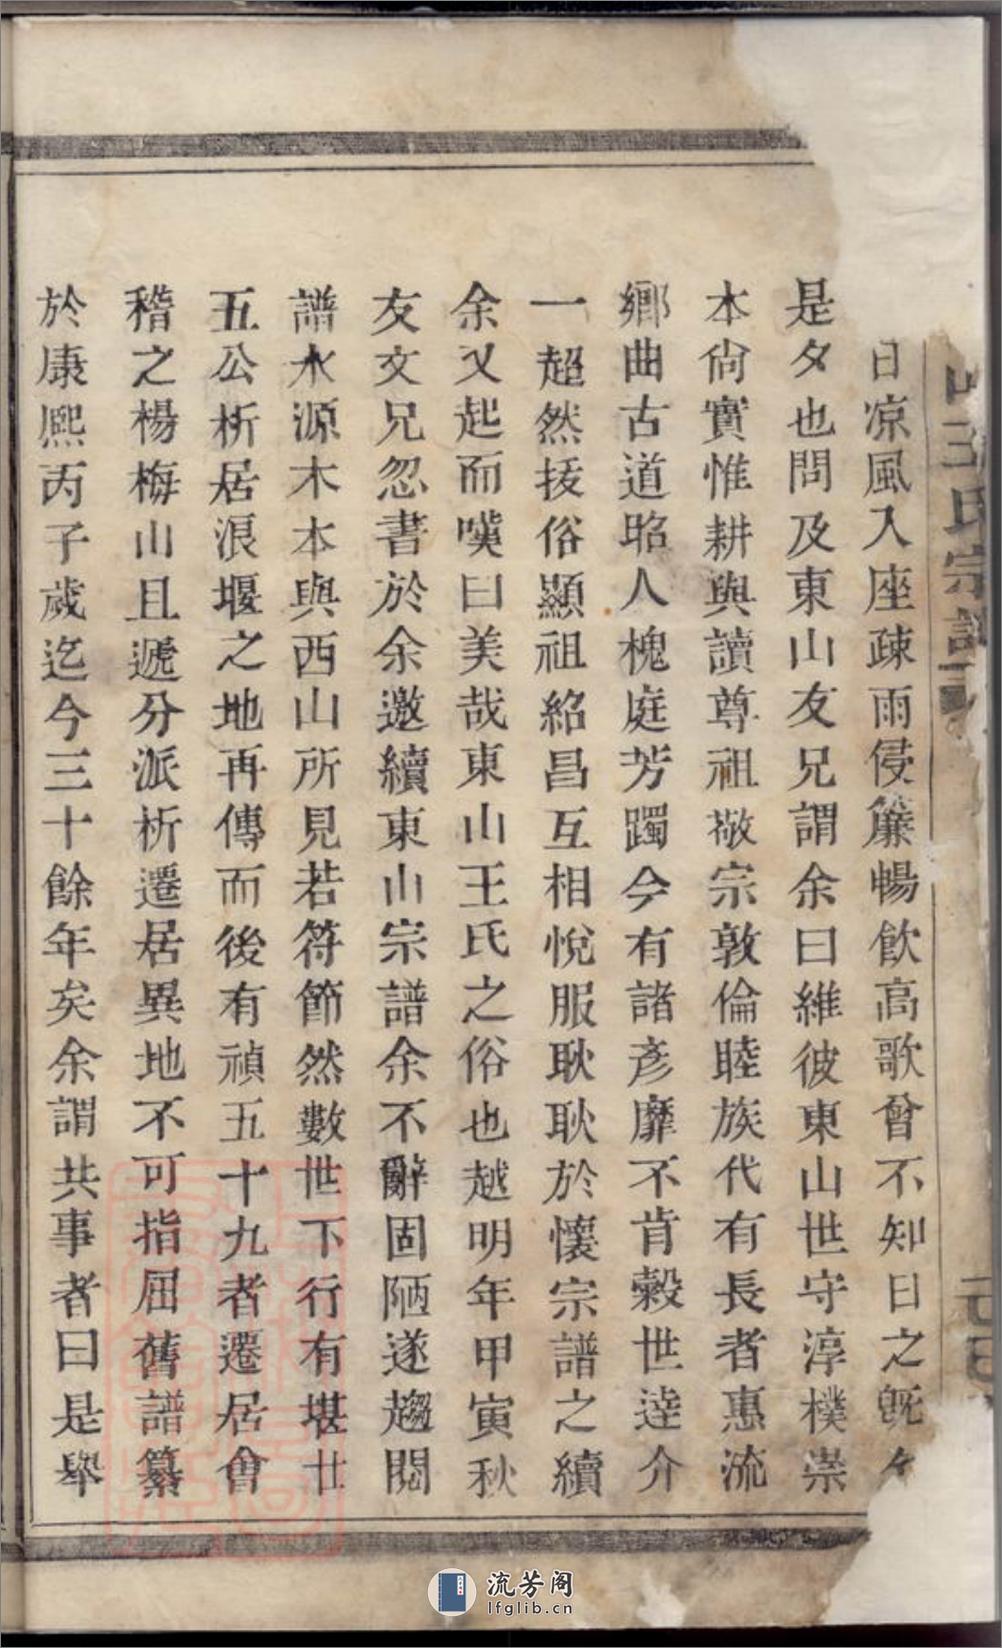 王氏宗譜
日凉風入座疎雨侵簾暢飲高歌曾不知日之既夕
是夕也問及東山友兄謂余曰維彼東山世守淳樸崇
本尙實惟耕與讀尊祖敬宗敦倫睦族代有長者惠流
鄉曲古道昭人槐庭芳躅今有諸彥靡不肯穀世逹介
一超然拔俗顯祖紹昌互相悅服耿耿於懷宗譜之續
余又起而嘆曰美哉東山王氏之俗也越明年甲寅秋
友文兄忽書於余邀續東山宗譜余不辭固陋遂趨閱
譜水源木本與西山所見若符節然數世下行有堪廿
五公析居浪堰之地再傳而後有禎五十九者遷居會
稽之楊梅山且遞分派析遷居異地不可指屈舊譜纂
於康熙丙子歲迄今三十餘年矣余謂共事者曰是舉
流芳阁
lfglib.cn